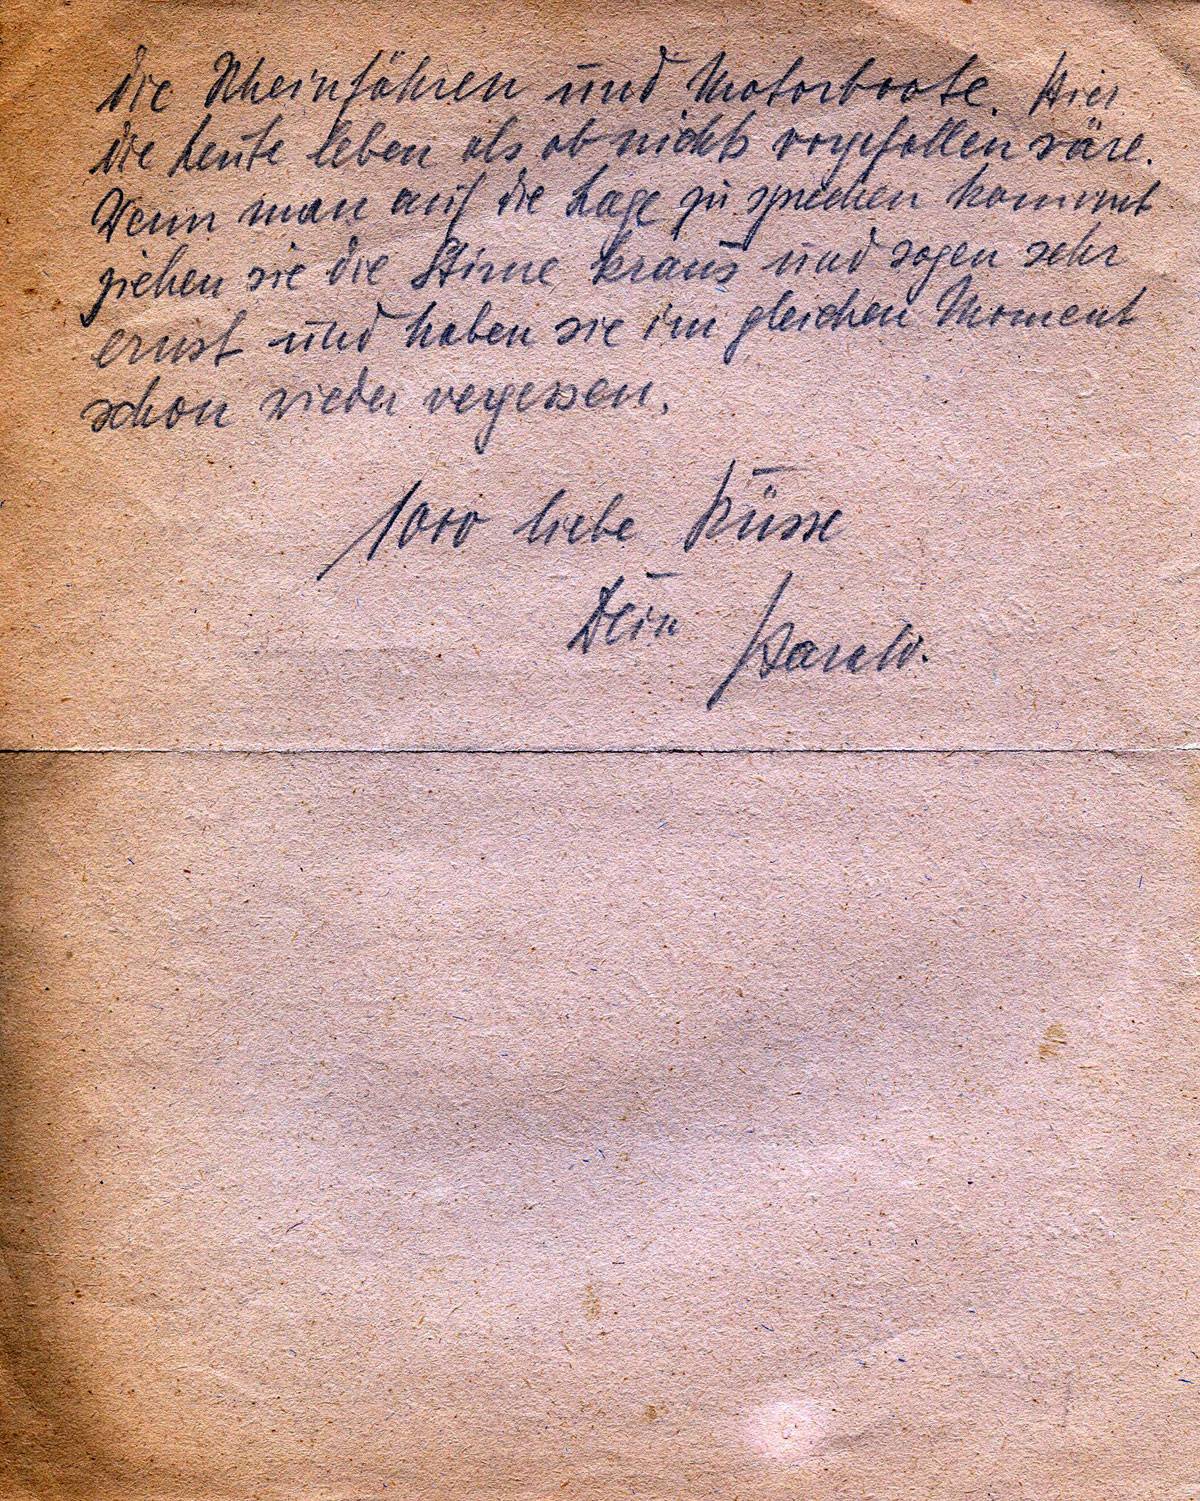 die Rheinfähren und Motorboote. Hier
die Leute leben als ob nichts vorgefallen wäre.
Wenn man auf die Lage zu sprechen kommt
ziehen sie die Stirne kraus und sagen sehr
ernst und haben sie im gleichen Moment
schon wieder vergessen.
1000 liebe Küsse
Dein Harald.